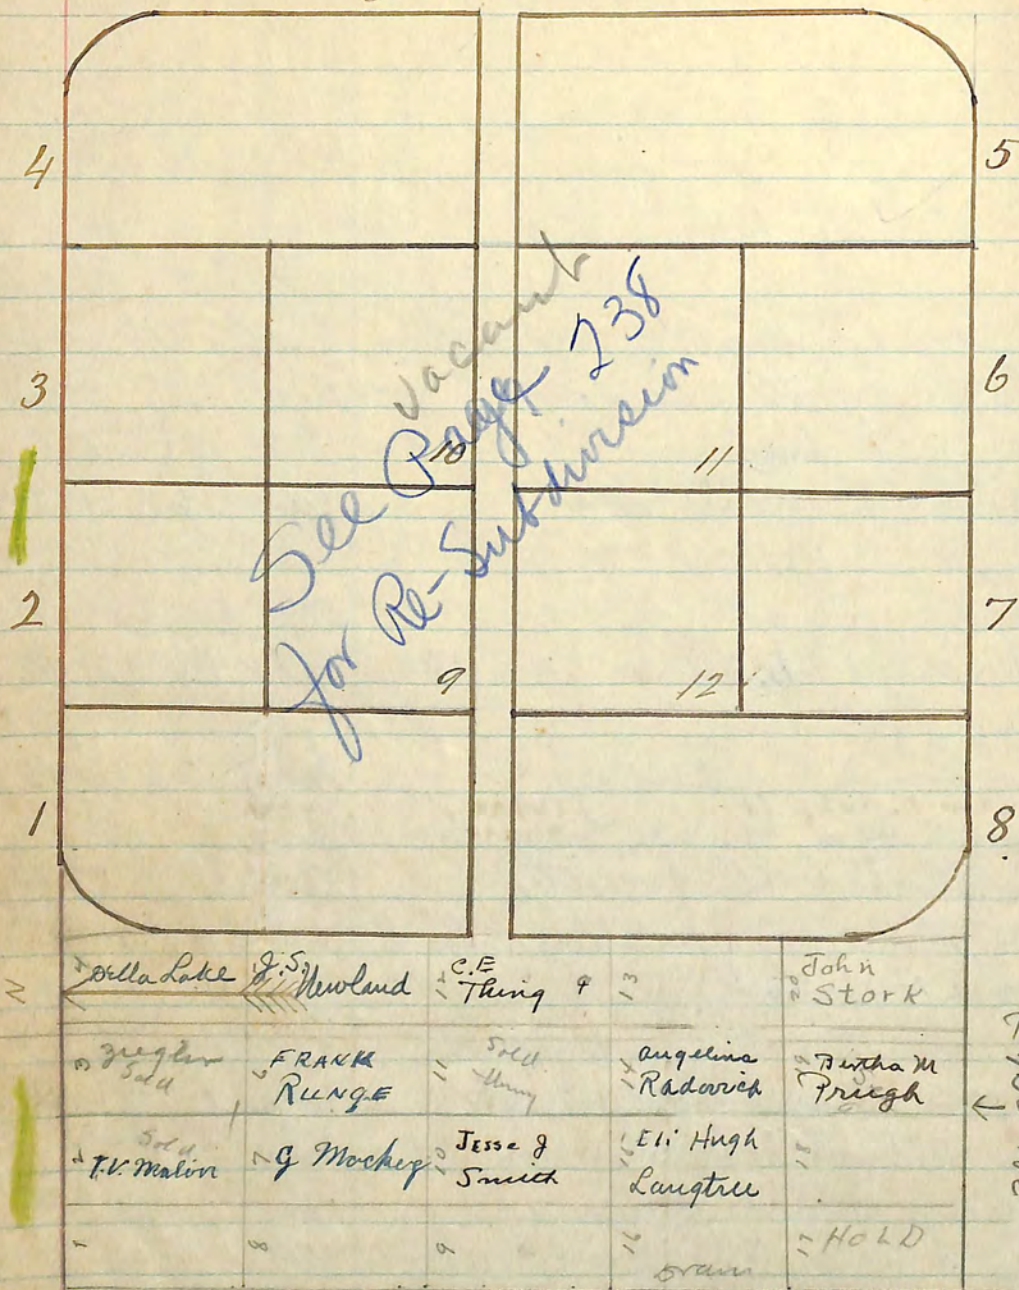 4
5
3
6
vacant
See Page 238
for Re-Subdivision
10
11
2
7
9
12
1
8
N
4 Della Lake
5 J.S. Newland
12 C.E Thing
13
20 John Stork
3 Ziegler Sold
6 FRANK RUNGE
11 Sold
14 Angelina Radovich
19 Bertha M Prugh
2 Sold T.V. Malin
7 G Mackey
10 Jesse J Smith
15 Eli Hugh Langtree
18
1
8
9
16
17 HOLD